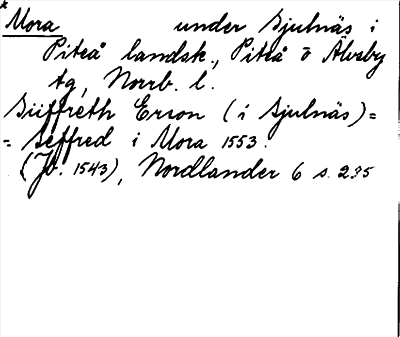 * Mora under Sjulnäs i
Piteå landsk., Piteå o Älvsby
tg, Norrb. l.
Siffreth Erson (i Sjulnäs) =
= Seffred i Mora 1553.
(Jb. 1543), Nordlander 6 s. 235